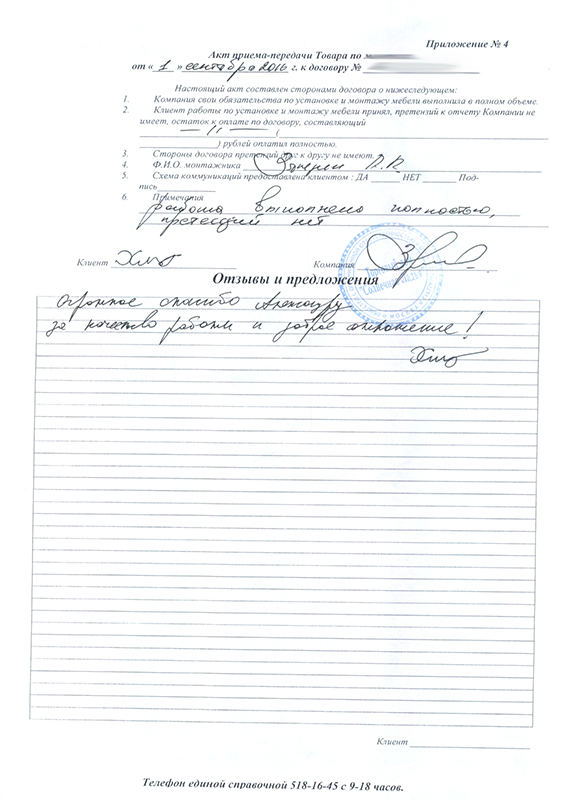 Приложение № 4
Акт приема-передачи Товара по
от « 1 » сентября 2016 г. к договору №
Настоящий акт составлен сторонами договора о нижеследующем:
1. Компания свои обязательства по установке и монтажу мебели выполнила в полном объеме.
2. Клиент работы по установке и монтажу мебели принял, претензий к отчету Компании не
имеет, остаток к оплате по договору, составляющий
— // — (
) рублей оплатил полностью.
3. Стороны договора претензий друг к другу не имеют.
4. Ф.И.О. монтажника
5. Схема коммуникаций предоставлена клиентом : ДА ______ НЕТ ______ Под-
пись
6. Примечания
работа выполнена полностью,
претензий нет
Клиент
Компания
Отзывы и предложения
Огромное спасибо Александру
за качество работы и доброе отношение!
Клиент
Телефон единой справочной 518-16-45 с 9-18 часов.